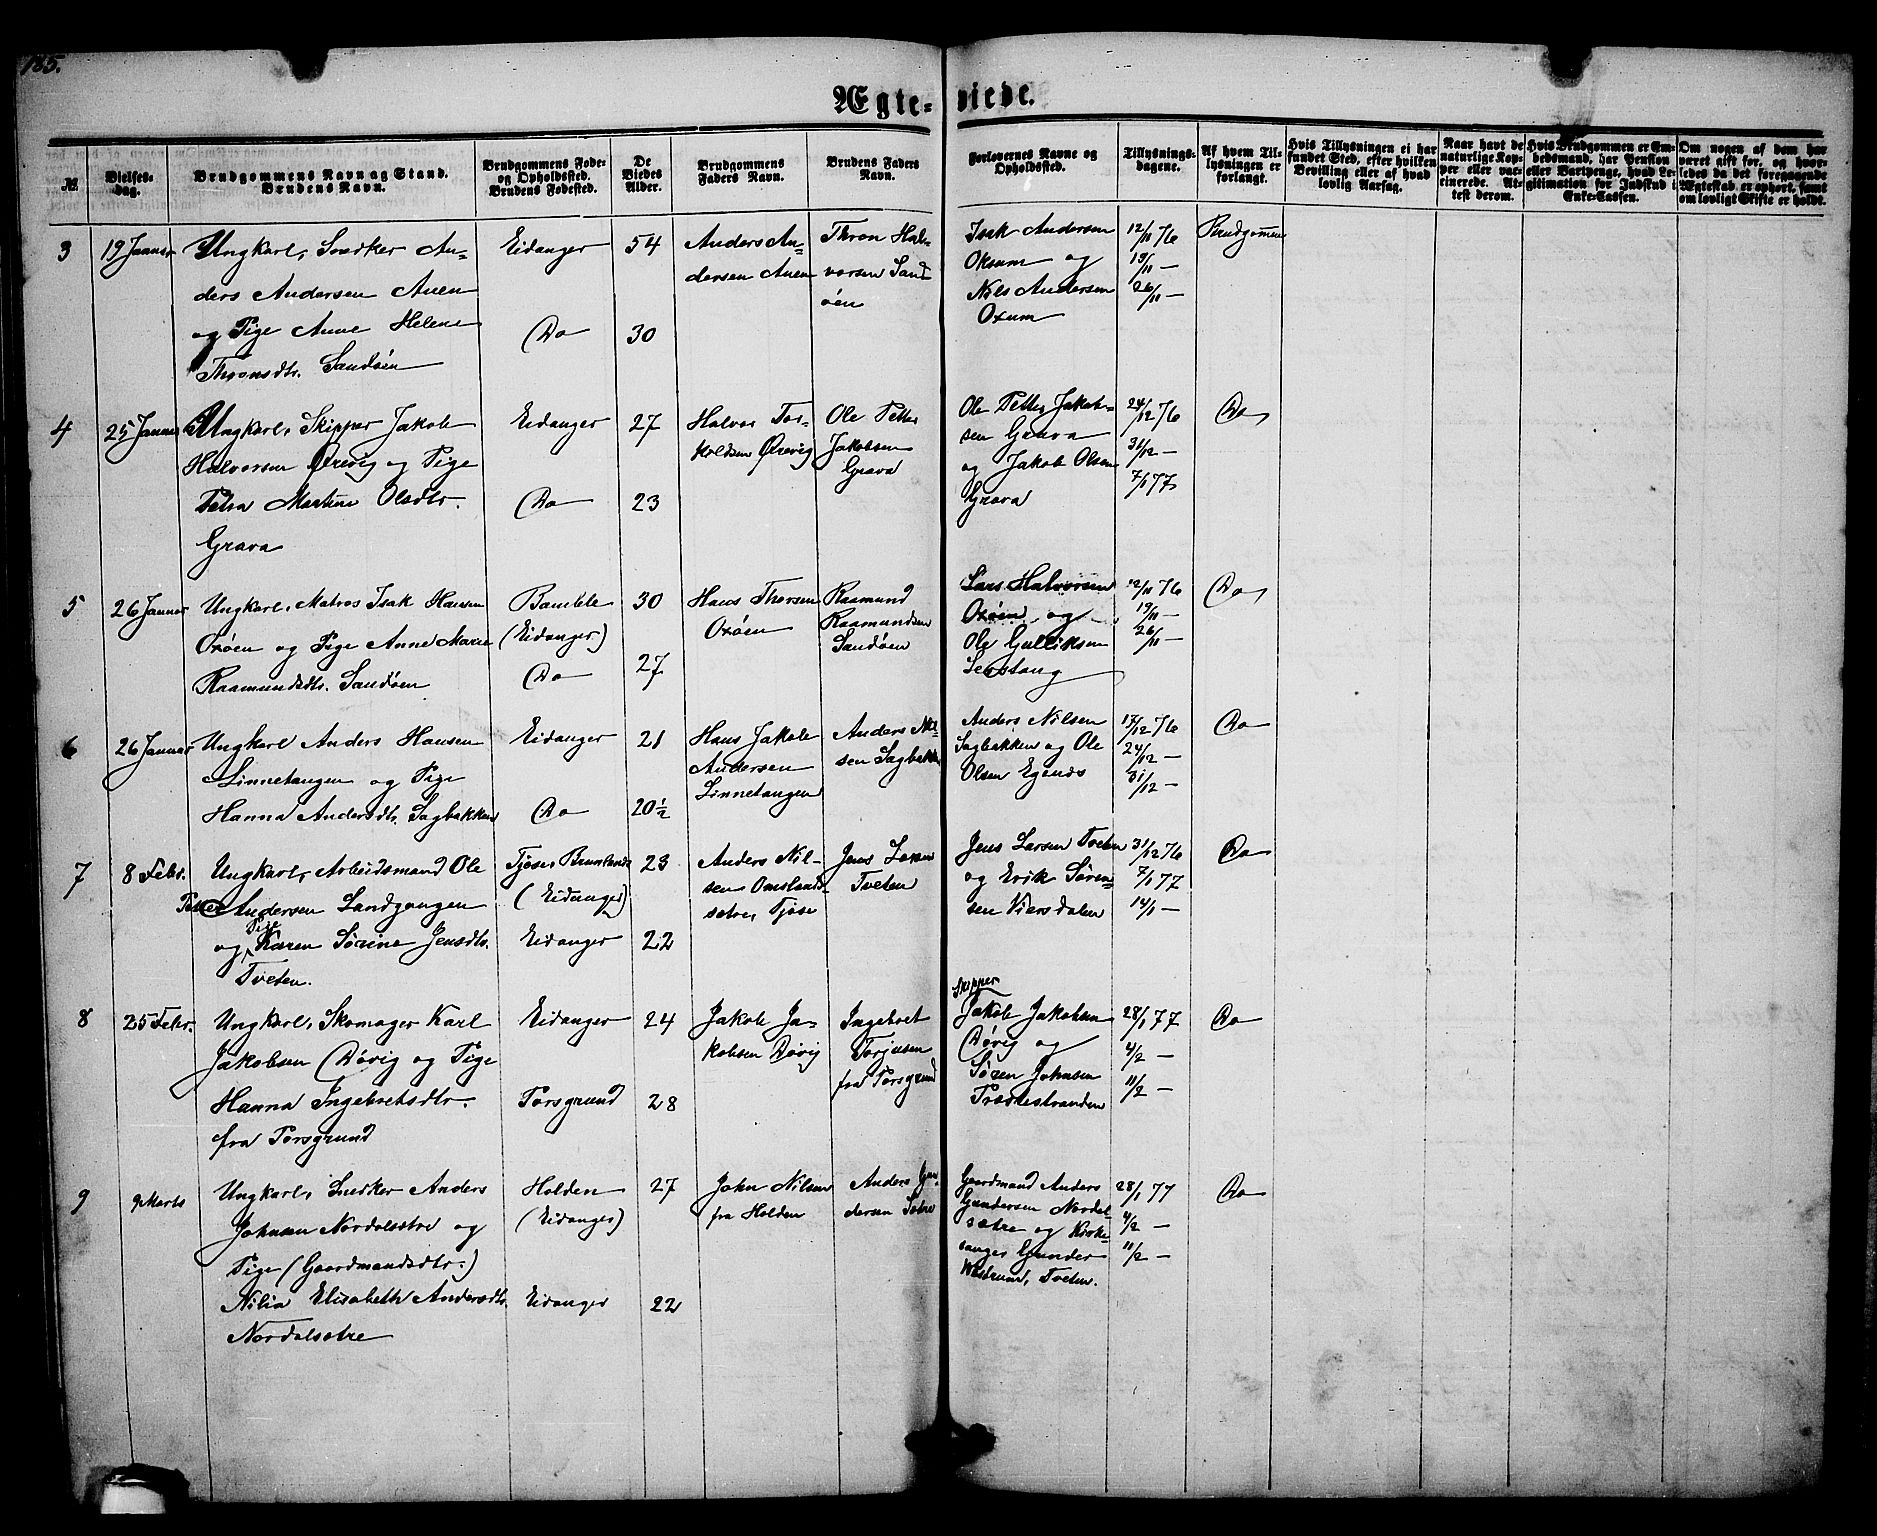 185.
Ægte-viede.
№.
Vielses-
dag.
Brudgommens Navn og Stand.
Brudens Navn.
Brudgommens Føde-
og Opholdssted.
Brudens Fødested.
De
Viedes
Alder.
Brudgommens
Faders Navn.
Brudens Faders
Navn.
Forlovernes Navne og
Opholdssted.
Tillysnings-
dagene.
Af hvem Til-
lysningen er
forlangt.
Hvis Tillysningen ei har
fundet Sted, efter hvilken
Bevilling eller af hvad
lovlig Aarsag.
Naar havt de
naturlige Kop-
per eller vac-
cinerede. At-
test derom.
Hvis Brudgommen er Em-
bedsmand, har Pension
eller Vartpenge, hvad Le-
gitimation for Indskud i
Enke-Cassen.
Om nogen af dem har
været gift før, og hvor-
ledes da det foregaaende
Ægteskab er ophørt, samt
om lovligt Skifte er holdt.
3
19 Januar
Ungkarl, Snedker An-
ders Andersen Auen
og Pige Anne Helene
Thronsdtr. Sandøen
Eidanger
Do
54
30
Anders An-
dersen Auen
Thron Hal-
vorsen Sand-
øen
Isak Andersen
Oksum og
Nils Andersen
Oxum
12/11 76
19/11 —
26/11 —
Brudgommen
4
25 Januar
Ungkarl, Skipper Jakob
Halvorsen Ørevig og Pige
Petra Martine Olsdtr.
Grava
Eidanger
Do
27
23
Halvor Tor-
koldsen Ørevig
Ole Petter
Jakobsen
Grava
Ole Petter Jakob-
sen Grava
og Jakob Olsen
Grava
24/12 76
31/12 —
7/1 77
Do
5
26 Januar
Ungkarl, Matros Isak Hansen
Oxøen og Pige Anne Marie
Raamundsdtr. Sandøen
Bamble
(Eidanger)
Do
30
27
Hans Thorsen
Oxøen
Raamund
Raamundsen
Sandøen
Lars Halvorsen
Oxøen og
Ole Gulliksen
12/11 76
19/11 —
26/11 —
Do
6
26 Januar
Ungkarl Anders Hansen
Linnetangen og Pige
Hanna Andersdtr. Sagbakken
Eidanger
Do
21
20½
Hans Jakob
Andersen
Linnetangen
Anders Nil-
sen Sagbakken
Anders Nilsen
Sagbakken og Ole
Olsen Egenæs
17/12 76
24/12 —
31/12 —
Do
7
8 Febr.
Ungkarl, Arbeidsmand Ole
Petter Andersen Landgangen
og Pige Karen Sørine Jensdtr.
Tveten.
Tjøse, Brunlanæs
(Eidanger)
Eidanger
23
22
Anders Nil-
sen Omslands-
sætre, Tjøse
Jens Larsen
Tveten
Jens Larsen Tveten
og Erik Søren-
sen Viersdalen
31/12 76
7/1 77
14/1 —
Do
8
25 Febr.
Ungkarl, Skomager Karl
Jakobsen Døvig og Pige
Hanna Ingebretsdtr.
fra Porsgrund
Eidanger
Porsgrund
24
28
Jakob Ja-
kobsen Døvig
Ingebret
Torjusen
fra Porsgrund
Skipper
Jakob Jakobsen
Døvig og
Søren Johnsen
Præstestranden
28/1 77
4/2 —
11/2 —
Do
9
9 Marts
Ungkarl, Snedker Anders
Johnsen Nordalsætre og
Pige (Gaardmandsdtr.)
Nilia Elisabeth Andersdtr.
Nordalsætre
Holden
(Eidanger)
Eidanger
27
22
John Nilsen
fra Holden
Anders Gun-
dersen Sætre
Gaardmand Anders
Gundersen Nordal-
sætre og Kirke-
sanger Gunder
Westrum, Tveten.
28/1 77
4/2 —
11/2 —
Do